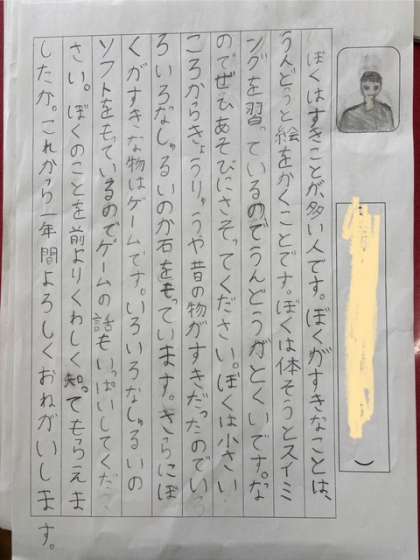 ぼくはすきことが多い人です。ぼくがすきなことは、
うんどうと絵をかくことです。ぼくは体そうとスイミ
ングを習っているのでうんどうがとくいです。な
のでぜひあそびにさそってください。ぼくは小さい
ころからきょうりゅうや昔の物がすきだったのでいろ
ろいろなしゅるいのか石をもっています。さらにぼ
くがすきな物はゲームです。いろいろなしゅるいの
ソフトをもっているのでゲームの話もいっぱいしてくだ
さい。ぼくのことを前よりくわしく知ってもらえま
したか。これから一年間よろしくおねがいします。